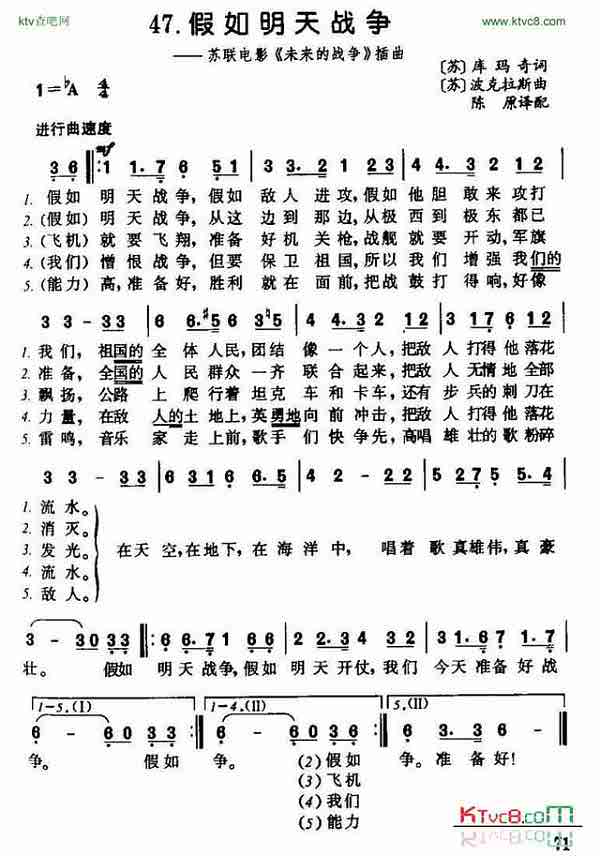 ktv查吧网
http://www.ktvc8.com
47.假如明天战争
——苏联电影《未来的战争》插曲
〔苏〕库玛奇词
〔苏〕波克拉斯曲
陈原译配
1=♭A 4/4
进行曲速度
mf
3 6 ‖: 1 1. 7 6 5 1 | 3 3. 2 1 1 2 3 | 4 4. 3 6 3 2 1 2 |
1. 假如 明天战争,假如 敌人 进攻,假如 他胆 敢来 攻打
2. (假如) 明天战争,从这 边到 那边,从极 西到 极东 都已
3. (飞机) 就要飞翔,准备 好机 关枪,战舰 就要 开动,军旗
4. (我们) 憎恨战争,但要 保卫 祖国,所以 我们 增强 我们的
5. (能力) 高,准备好,胜利 就在 面前,把战 鼓打 得响,好像
3 3 - 3 3 | 6 6. 5 4 3 ♮5 | 6 6. 4 2 1 2 | 3 3 1 7 6 1 7 |
1. 我们, 祖国的 全体人民,团结 像一个人,把敌 人打得他落花
2. 准备, 全国的 人民群众一齐 联合起来,把敌 人无情地全部
3. 飘扬, 公路 上爬行着坦克 车和卡车,还有 步兵的刺刀在
4. 力量, 在敌 人的土地上,英勇地向前冲击,把敌 人打得他落花
5. 雷鸣, 音乐 家走上前,歌手 们快争先,高唱 雄壮的歌粉碎
3 3 - 3 3 | 6 3 1 6 3 2 1 | 6 6. 5 - 4 | 5 2 7 5 5. 4 |
1. 流水。
2. 消灭。
3. 发光。 在天 空,在地下,在 海洋中, 唱着 歌真雄伟,真豪
4. 流水。
5. 敌人。
3 - 3 0 3 3 ‖: 6 6. 7 1 6 6 | 1 1. 2 3 3 3 | 3 1. 6 7 1 2 7 |
壮。 假如 明天战争,假如 明天开仗,我们 今天准备好战
1-5.(Ⅰ) 1-4.(Ⅱ) 5.(Ⅱ)
6 - 6 0 3 3 :‖ 6 - 6 0 3 6 :‖ 6 6 6 6 0 ‖
争。 假如 争。 (2)假如 争。准备好!
(3)飞机
(4)我们
(5)能力
KTvc8.com
71